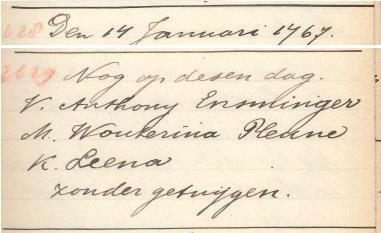 628 Den 14 Januari 1767.
2629 Nog op desen dag.
V. Anthony Ensminger
M. Wouterina Pleune
K. Leena
zonder getuijgen.